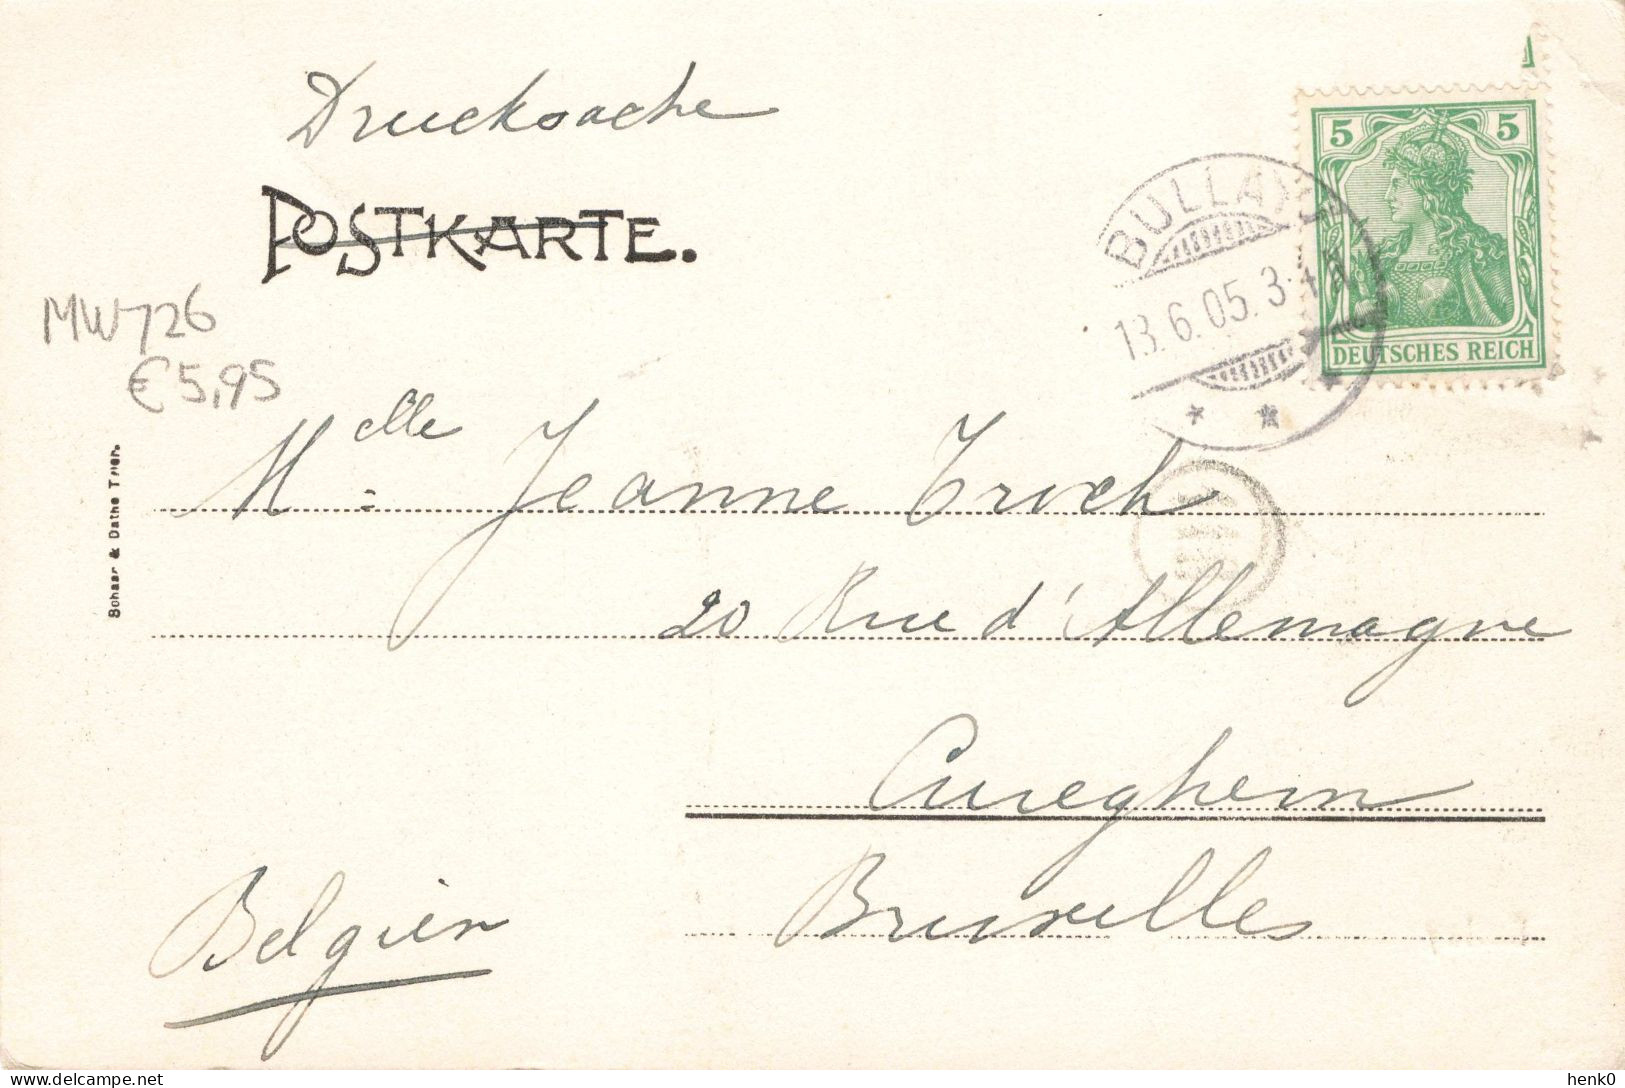 Drucksache
POSTKARTE.
5 5
DEUTSCHES REICH
BULLAY
13.6.05. 3-4 N
MW726
€5,95
Melle Jeanne Troch
20 Rue d'Allemagne
Cureghem
Bruxelles
Belgien
Schaar & Dathe Trier.
delcampe.net
henk0